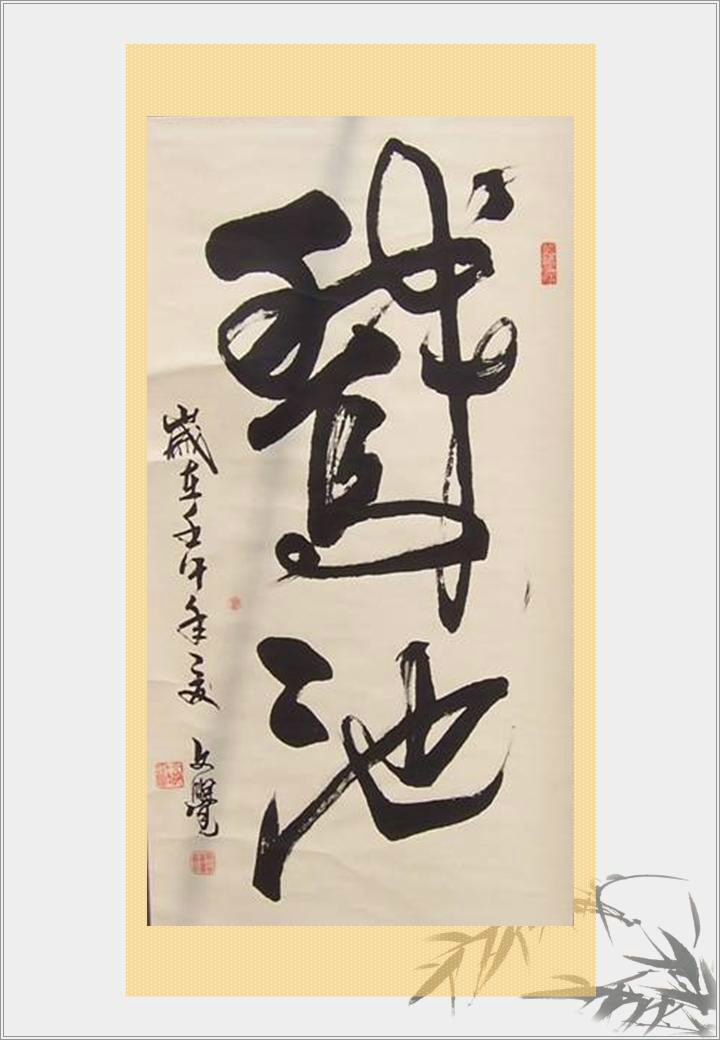 鵞池
歲在壬午年夏
文覺